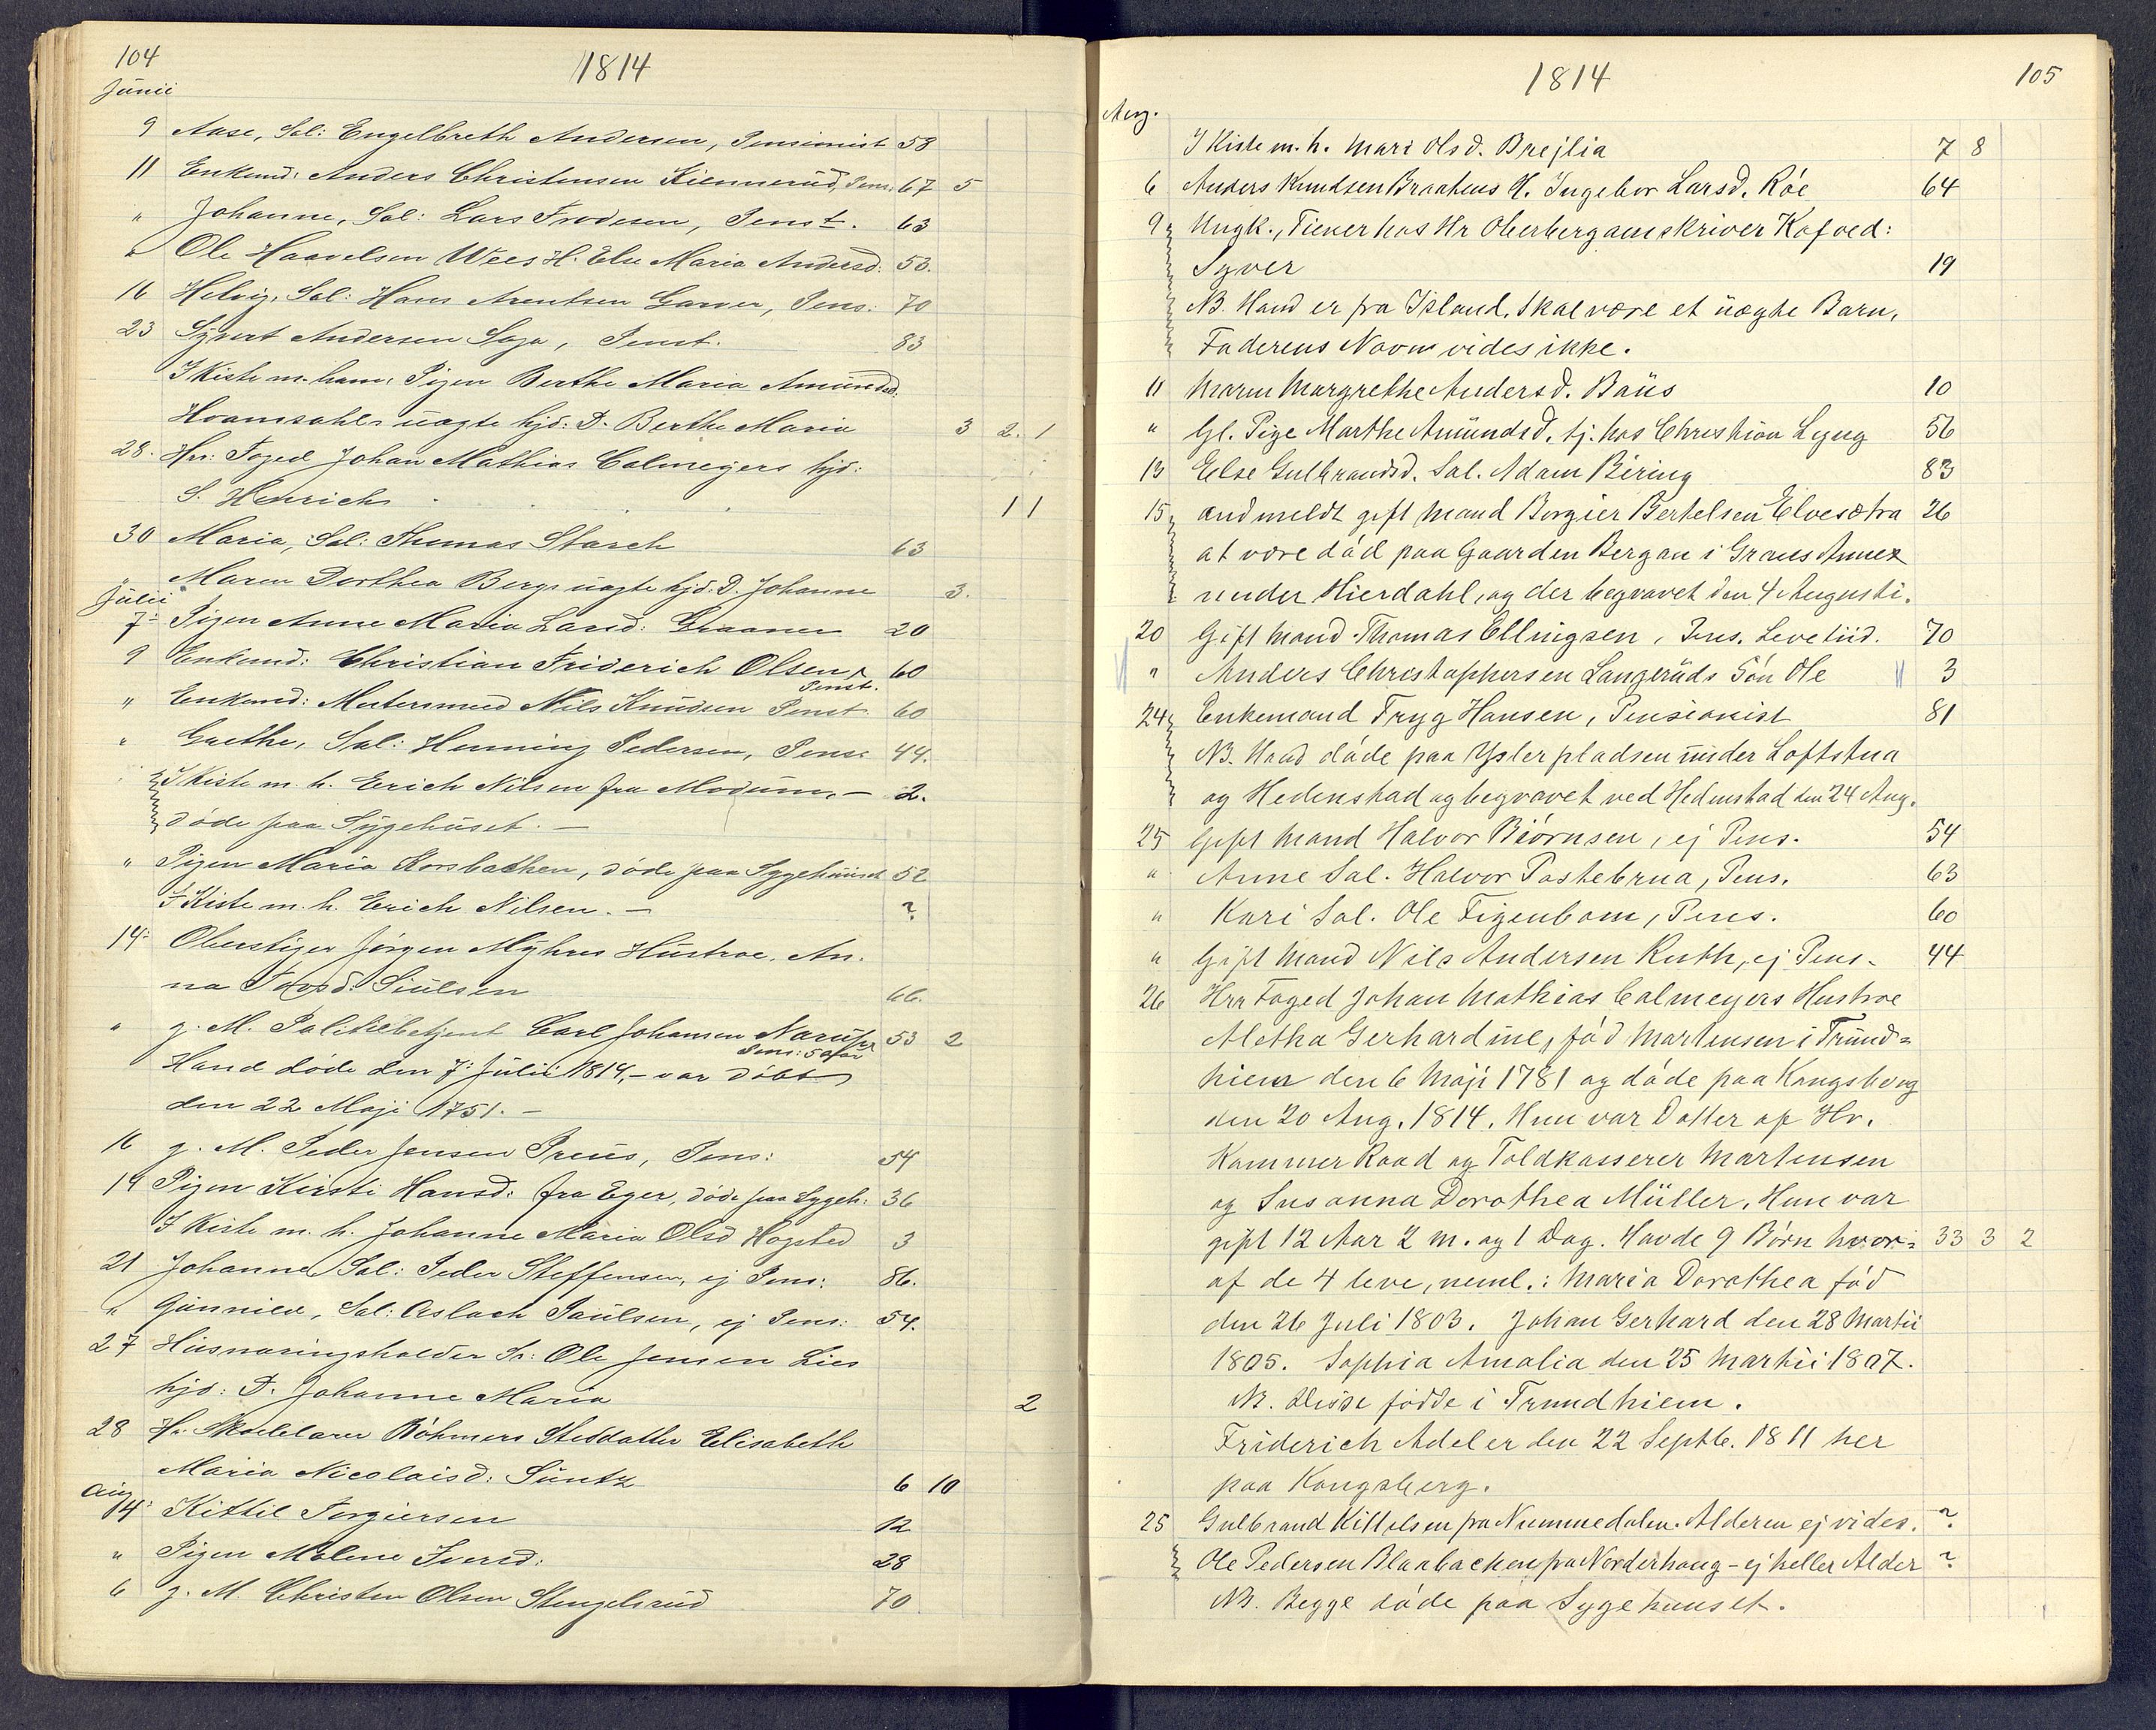 104
1814
Junii
9 Aase, Sal: Engelbreth Andersen, Pensionist 58
11 Enkemd: Anders Christensen Kiennerud, Pens: 67 5
" Johanne, Sal: Lars Frodesen, Penst. 63
" Ole Haavelsen Wees H. Else Maria Andersd: 53.
16 Helvig, Sal: Hans Arentsen Garver, Pens: 70
23 Syvert Andersen Saga, Penst. 83
I Kiste m. ham: Pigen Berthe Maria Amundsd.
Hvamsahls uægte hjd: D. Berthe Maria 3 2. 1
28. Hr: Foged Johan Mathias Calmeyers hjd:
S. Henrich 11
30 Maria, Sal: Thomas Starch 63
" Maren Dorthea Bergs uægte hjd. D. Johanne 3.
Julii
7 Pigen Anne Maria Larsd: Graaner 20
9 Enkemd: Christian Friderich Olsen, 60
Penst.
" Enkemd: Mestersmed Nils Knudsen Penst 60
" Grethe, Sal: Henning Pedersen, Pens: 44.
I Kiste m. h. Erich Nilsen fra Modum, — 2.
døde paa Sygehuset. —
" Pigen Maria Korsbachen, døde paa Sygehuuset 52
I Kiste m. h. Erich Nilsen. — ?
14: Oberstiger Jørgen Myhres Hustroe. An-
na Povsd: Siulsen 66.
" g. M. Politiebetjent Carl Johansen Narup, 53 2
Hand døde den 7: Julii 1814, — var døbt
den 22 Maji 1751. —
16 g. M. Peder Jensen Preus, Pens: 54
19 Pigen Kirsti Hansd: fra Eger, døde paa Sygeh: 36
I Kiste m. h. Johanne Maria Olsd Hogsted 3
21 Johanne, Sal: Peder Steffensen, ej Pens: 86.
" Gunnild, Sal: Aslach Paulsen, ej Pens: 54.
27 Huusnæringsholder Sr: Ole Jensen Lies
hjd: D. Johanne Maria 2
28 Hr: Skolelærer Bøhmers Steddatter Elisabeth
Maria Nicolaisd: Suntz 6 10
Aug
14: Kittil Torgiersen 12
" Pigen Malene Iversd: 28
6 g. M. Christen Olsen Stengelsrud 70
1814
105
Aug.
I Kiste m. h. Mari Olsd. Brejlia 7 8
6 Anders Knudsen Braatens H. Ingebor Larsd. Røe 64
9 Ungk., Tiener hos Hr Oberbergamtskriver Kofoed:
Syver 19
NB. Hand er fra Island, skal være et uægte Barn,
Faderens Navn vides ikke.
11 Maren Margrethe Andersd. Baüs 10
" Gl. Pige Marthe Amundsd. tj. hos Christian Lyng 56
13 Else Gulbrandsd. Sal. Adam Biring 83
15 andmeldt gift Mand Borgier Bertelsen Elvesætra 26
at være død paa Gaarden Bergan i Grans Annex
under Hierdahl, og der begravet den 4 Augusti.
20 Gift Mand Thomas Ellingsen, Pens. Levetiid. 70
" Anders Christophersen Langeruds Søn Ole 3
24 Enkemand Tryg Hansen, Pensionist 81
NB. Hand døde paa Ysterpladsen under Loftstua
og Hedenstad og begravet ved Hedenstad den 24 Aug.
25 Gift Mand Halvor Biørnsen, ej Pens. 54
" Anne Sal. Halvor Postebrua, Pens. 63
" Kari Sal. Ole Figenbom, Pens. 60
" Gift Mand Nils Andersen Ruth, ej Pens. 44
26 Hrr Foged Johan Mathias Calmeyers Hustroe
Aletha Gerhardine, fød Martensen i Trund=
hiem den 6 Maji 1781 og døde paa Kongsberg
den 20 Aug. 1814. Hun var Datter af Hr.
Kammer Raad og Toldkasserer Martensen
og Susanna Dorothea Müller. Hun var
gift 12 Aar 2 m. og 1 Dag. Havde 9 Børn hvor= 33 3 2
af de 4 leve, neml.: Maria Dorothea fød
den 26 Juli 1803. Johan Gerhard den 28 Martii
1805. Sophia Amalia den 25 Martii 1807.
NB. Disse fødde i Trundhiem.
Friderich Adeler den 22 Septb. 1811 her
paa Kongsberg.
25 Gulbrand Kittelsen fra Nummedalen. Alderen ej vides. ?
Ole Pedersen Blaabachen fra Norderhoug - ej heller Alder ?
NB. Begge døde paa Sygehuuset.